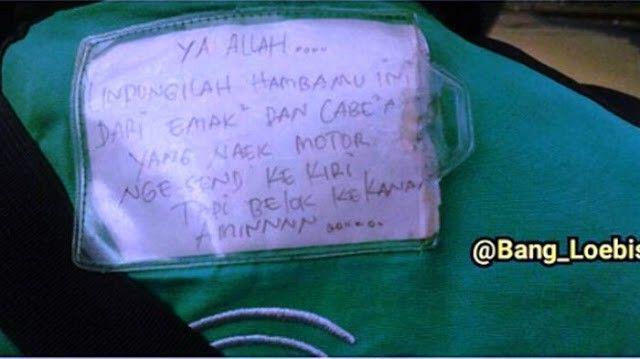 YA ALLAH....
LINDUNGILAH HAMBAMU INI
DARI EMAK² DAN CABE²A
YANG NAEK MOTOR
NGE SEND KE KIRI
TAPI BELOK KE KANAN
AMINNNN .......
@Bang_Loebis